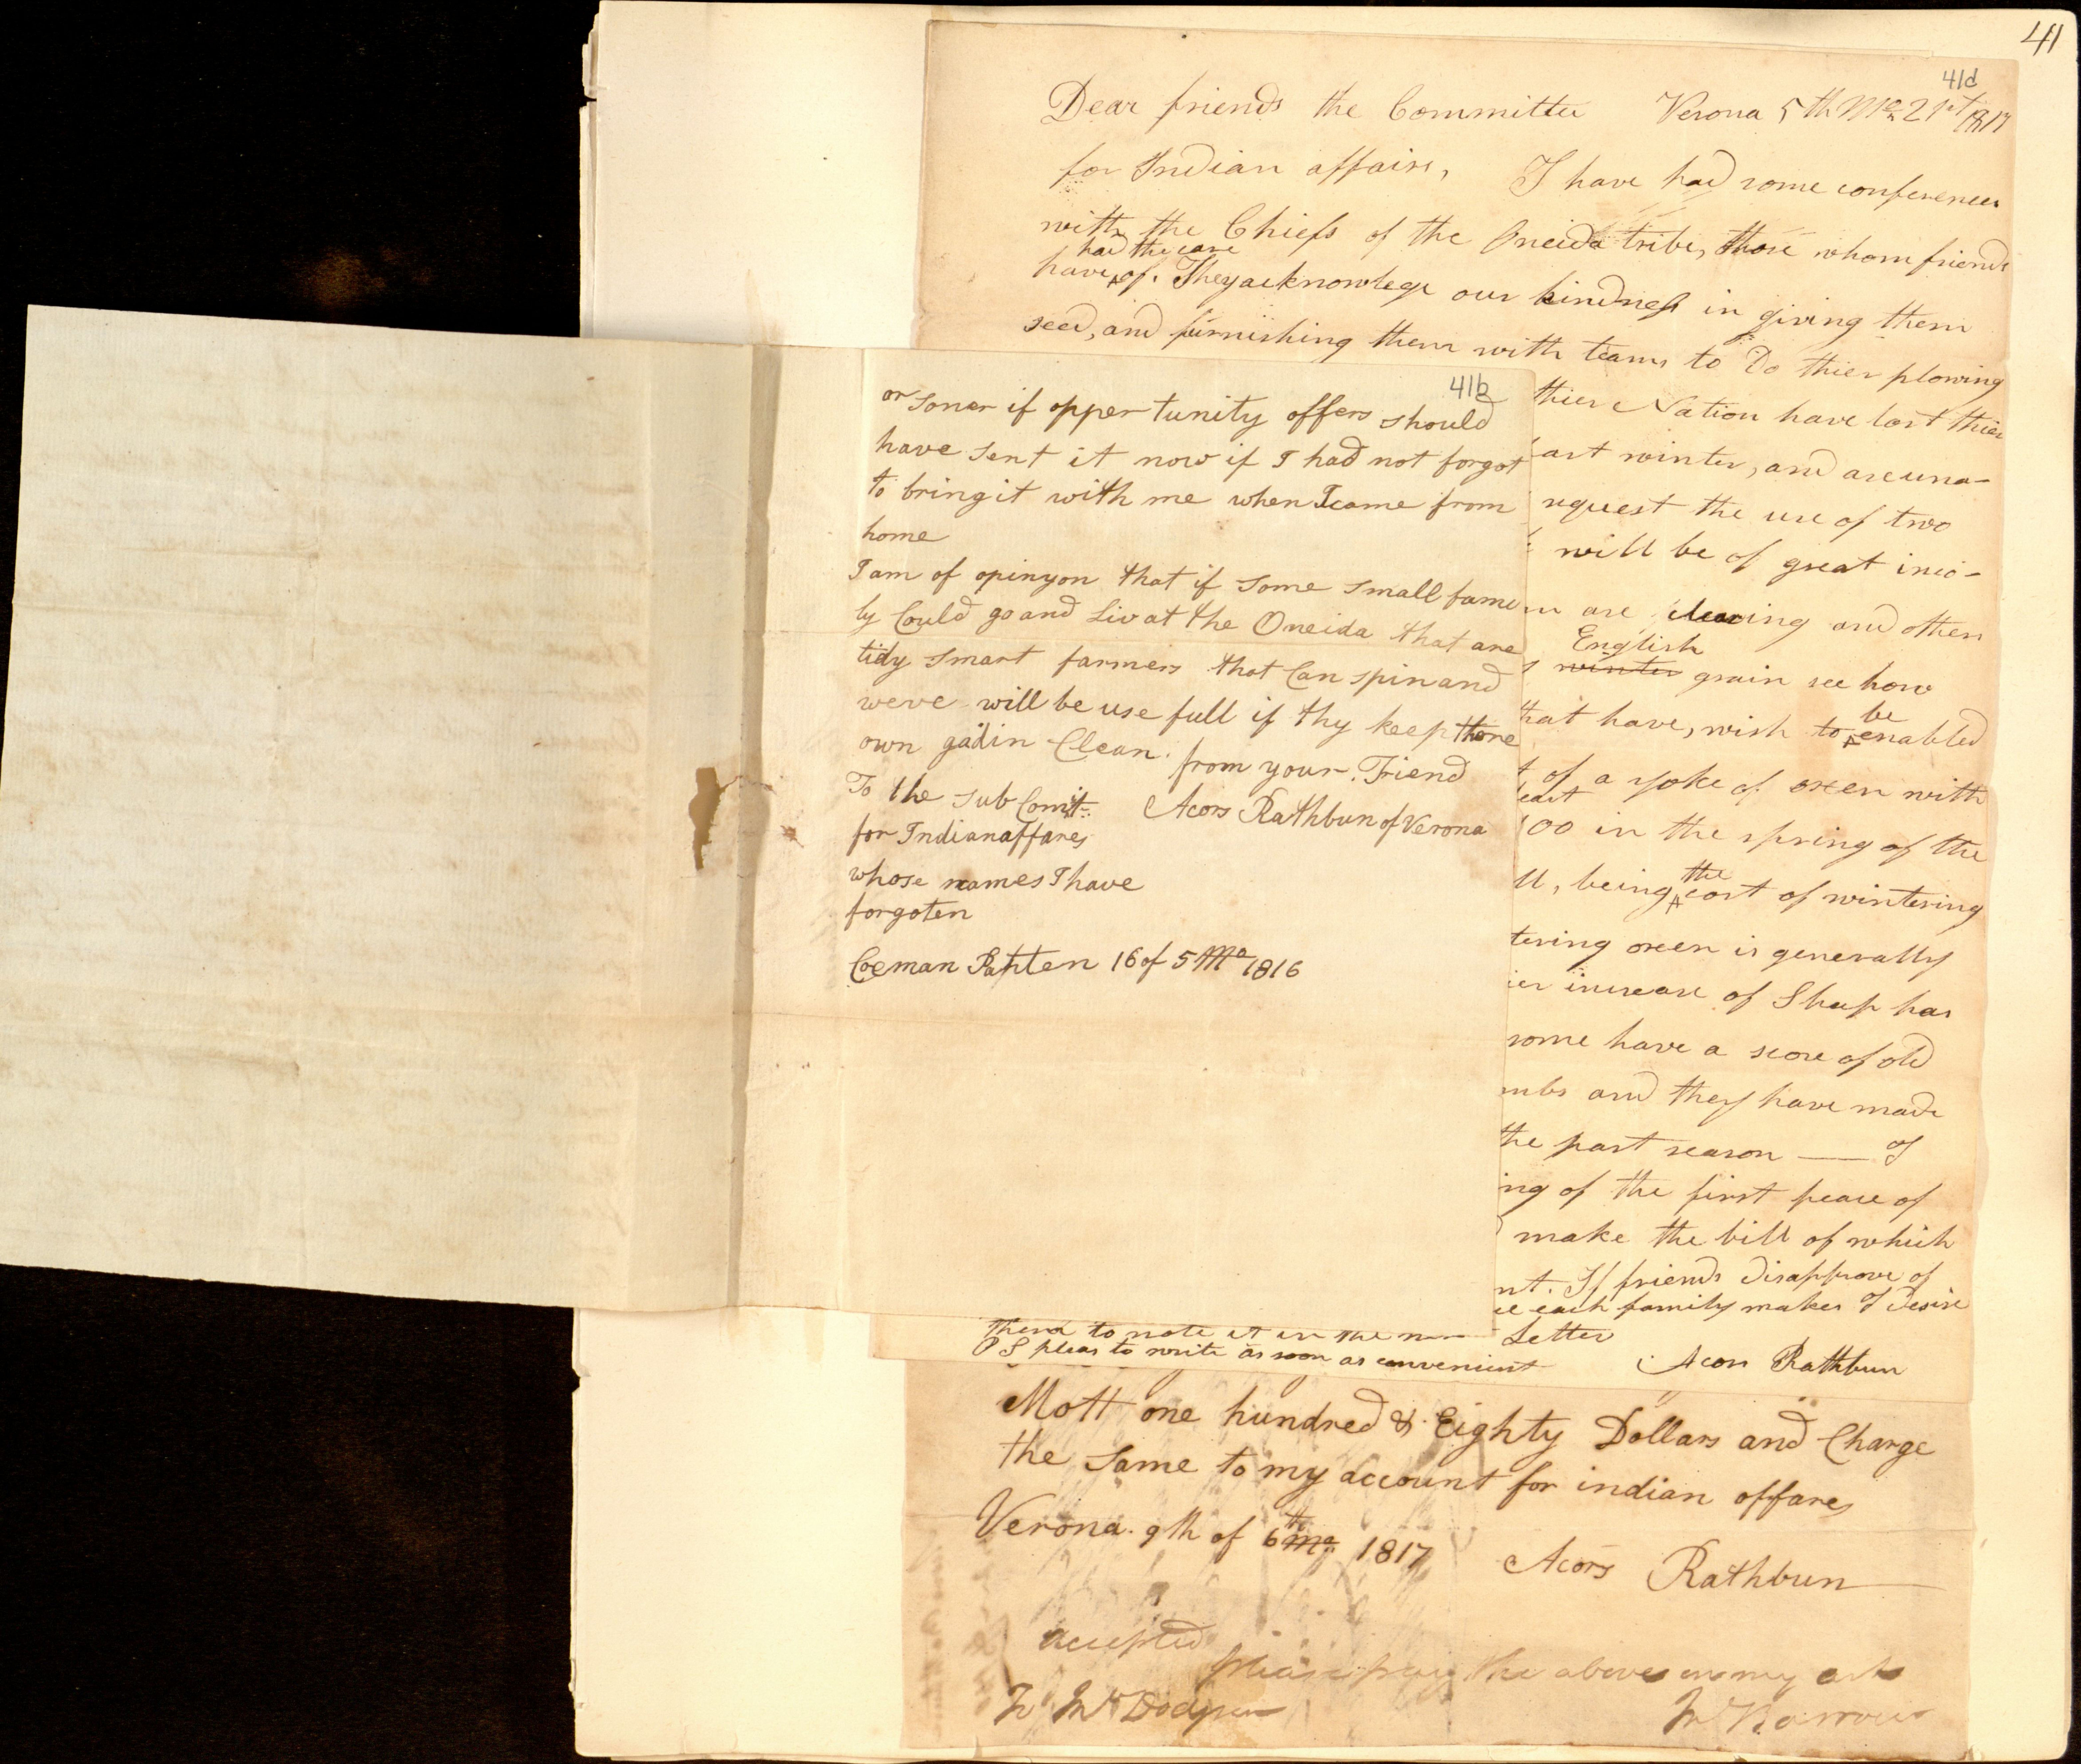 41
41d
Dear friends the Committee Verona 5th Mo 21st 1817
for Indian affairs, I have had some conferences
with the Chiefs of the Oneida tribe, those whom friends
had the care
have of. They acknowlege our kindness in giving them
seed, and furnishing them with teams to do thier plowing
thier Nation have lost thier
ast winter, and are una-
request the use of two
will be of great inco-
are clearing and others
English
winter grain see how
that have, wish to be enabled
of a yoke of oxen with
least
100 in the spring of the
ll, being the cost of wintering
tering oxen is generally
ier increase of Sheep has
some have a score of old
mbs and they have made
the past season — I
ing of the first peace of
make the bill of which
nt. If friends disapprove of
each family makes I desire
them to note it in the Letter
P S pleas to write as soon as convenient Acors Rathbun
41b
or soner if oppertunity offers should
have sent it now if I had not forgot
to bring it with me when I came from
home
I am of opinyon that if some small fame
ly Could go and Liv at the Oneida that are
tidy smart farmers that Can spin and
weve will be use full if thy keep thare
own gadin Clean. from your Friend
To the sub Comit Acors Rathbun of Verona
for Indian affares
whose names I have
forgoten
16 of 5 Mo 1816
Mott one hundred & Eighty Dollars and Charge
the same to my account for indian affares
Verona 9th of 6th mo. 1817
Acors Rathbun
accepted
please pay the above on my